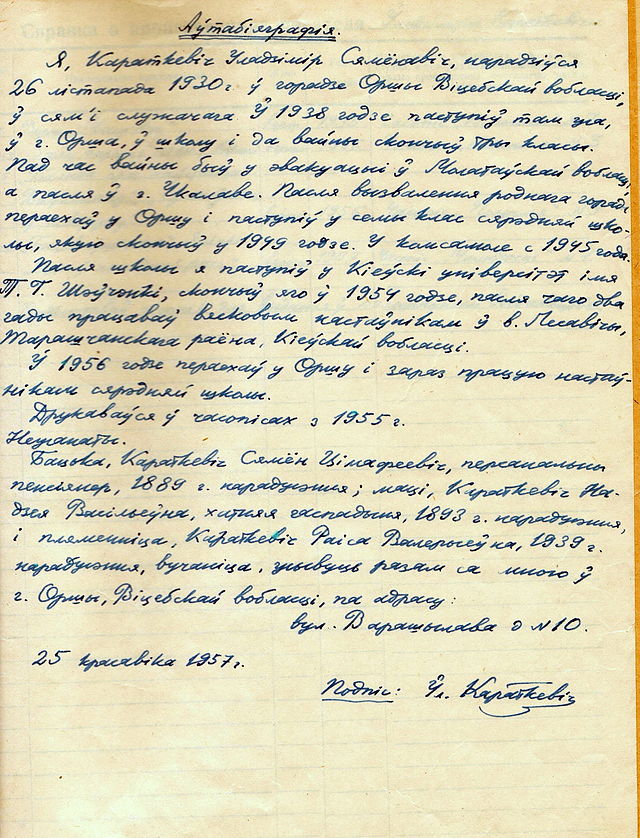 Аўтабіяграфія.
Я, Караткевіч Уладзімір Сямёнавіч, нарадзіўся
26 лістапада 1930 г. ў горадзе Оршы Віцебскай вобласці,
ў сям'і служачага. Ў 1938 годзе паступіў там жа,
ў г. Орша, ў школу і да вайны скончыў тры класы.
Пад час вайны быў у эвакуацыі ў Молатаўскай вобласці,
а пасля ў г. Чкалаве. Пасля вызвалення роднага горада
пераехаў у Оршу і паступіў у семы клас сярэдняй шко-
лы, якую скончыў у 1949 годзе. У камсамоле с 1945 года.
Пасля школы я паступіў у Кіеўскі універсітэт імя
Т. Г. Шэўчэнкі, скончыў яго ў 1954 годзе, пасля чаго два
гады працаваў вясковым настаўнікам ў в. Лесавічы,
Таращчанскага раёна, Кіеўскай вобласці.
Ў 1956 годзе пераехаў у Оршу і зараз працую настаў-
нікам сярэдняй школы.
Друкаваўся ў часопісах з 1955 г.
Нежанаты.
Бацька, Караткевіч Сямён Цімафеевіч, персанальны
пенсіянер, 1889 г. нараджэння; маці, Караткевіч На-
дзея Васільеўна, хатняя гаспадыня, 1893 г. нараджэння,
і пляменніца, Караткевіч Раіса Валерыеўна, 1939 г.
нараджэння, вучаніца, жывуць разам са мною ў
г. Оршы, Віцебскай вобласці, па адрасу:
вул. Варашылава д № 10.
25 красавіка 1957 г.
Подпіс: Ўл. Караткевіч